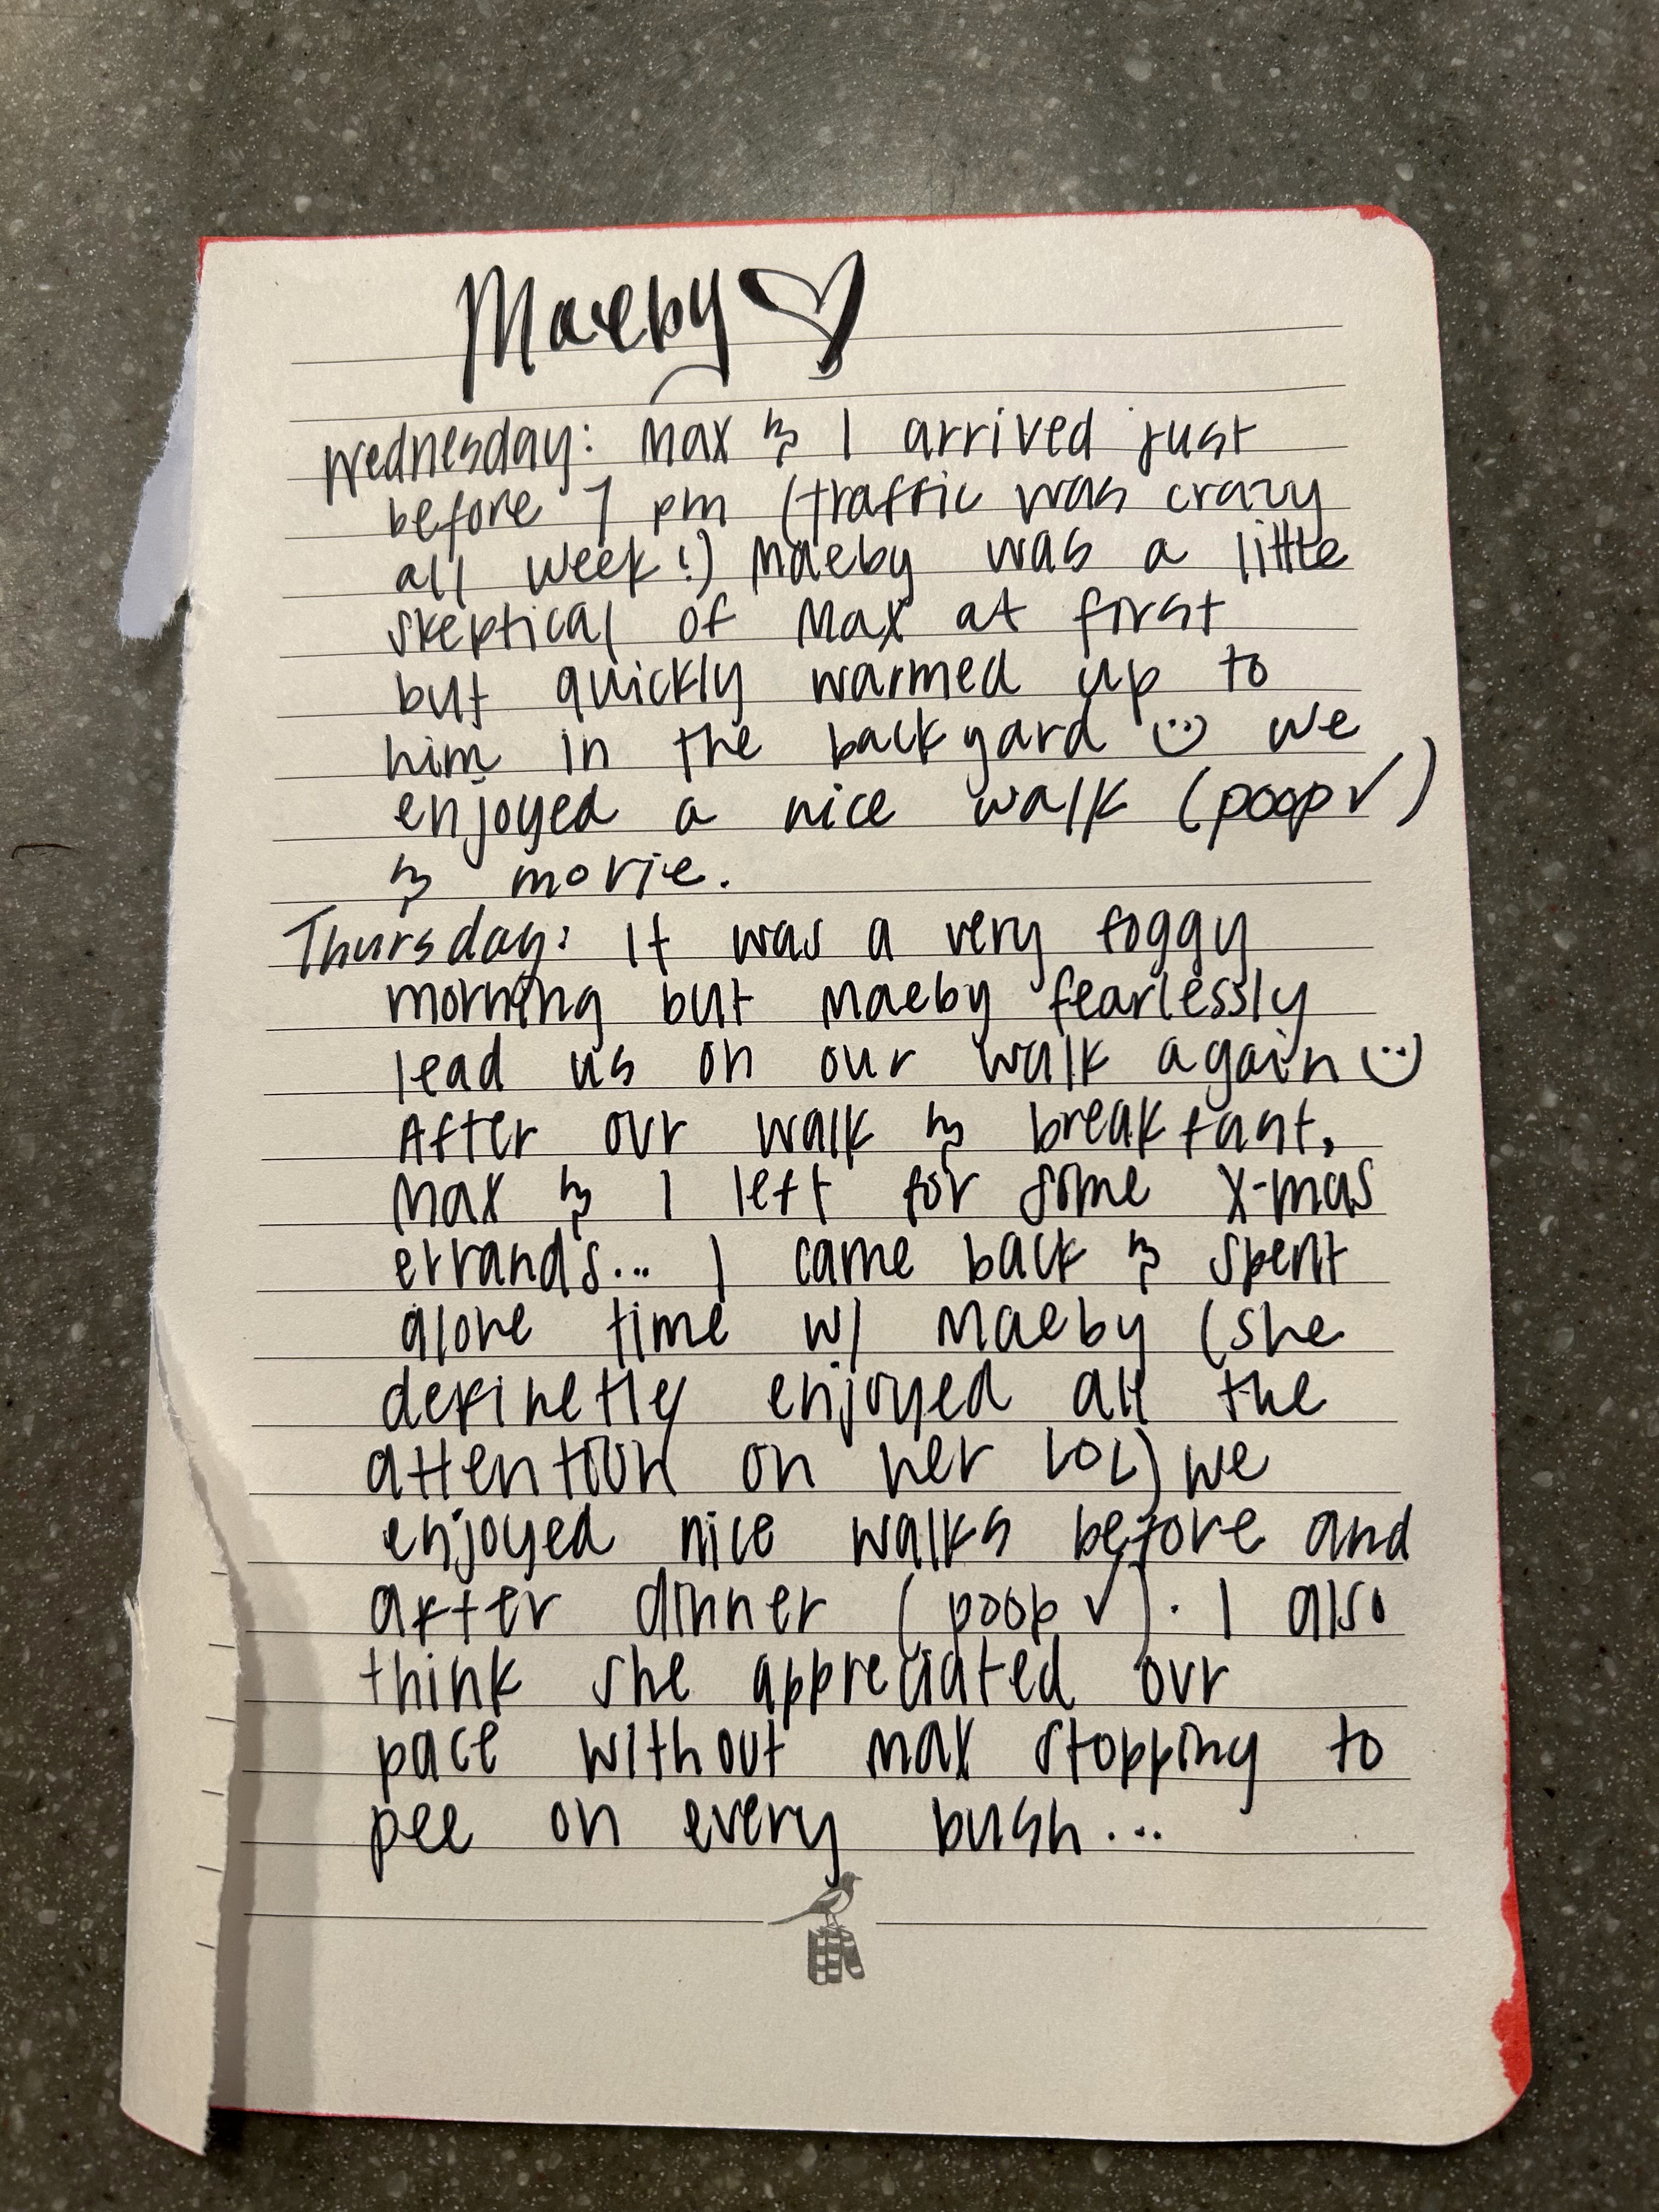 Maeby ♡
Wednesday: Max & I arrived just
before 7 pm (traffic was crazy
all week!) Maeby was a little
skeptical of Max at first
but quickly warmed up to
him in the backyard :) we
enjoyed a nice walk (poop ✓)
& movie.
Thursday: It was a very foggy
morning but Maeby fearlessly
lead us on our walk again :)
After our walk & breakfast,
Max & I left for some X-mas
errands... I came back & spent
alone time w/ Maeby (she
definetly enjoyed all the
attention on her LOL) we
enjoyed nice walks before and
after dinner (poop ✓). I also
think she appreciated our
pace without max stopping to
pee on every bush...